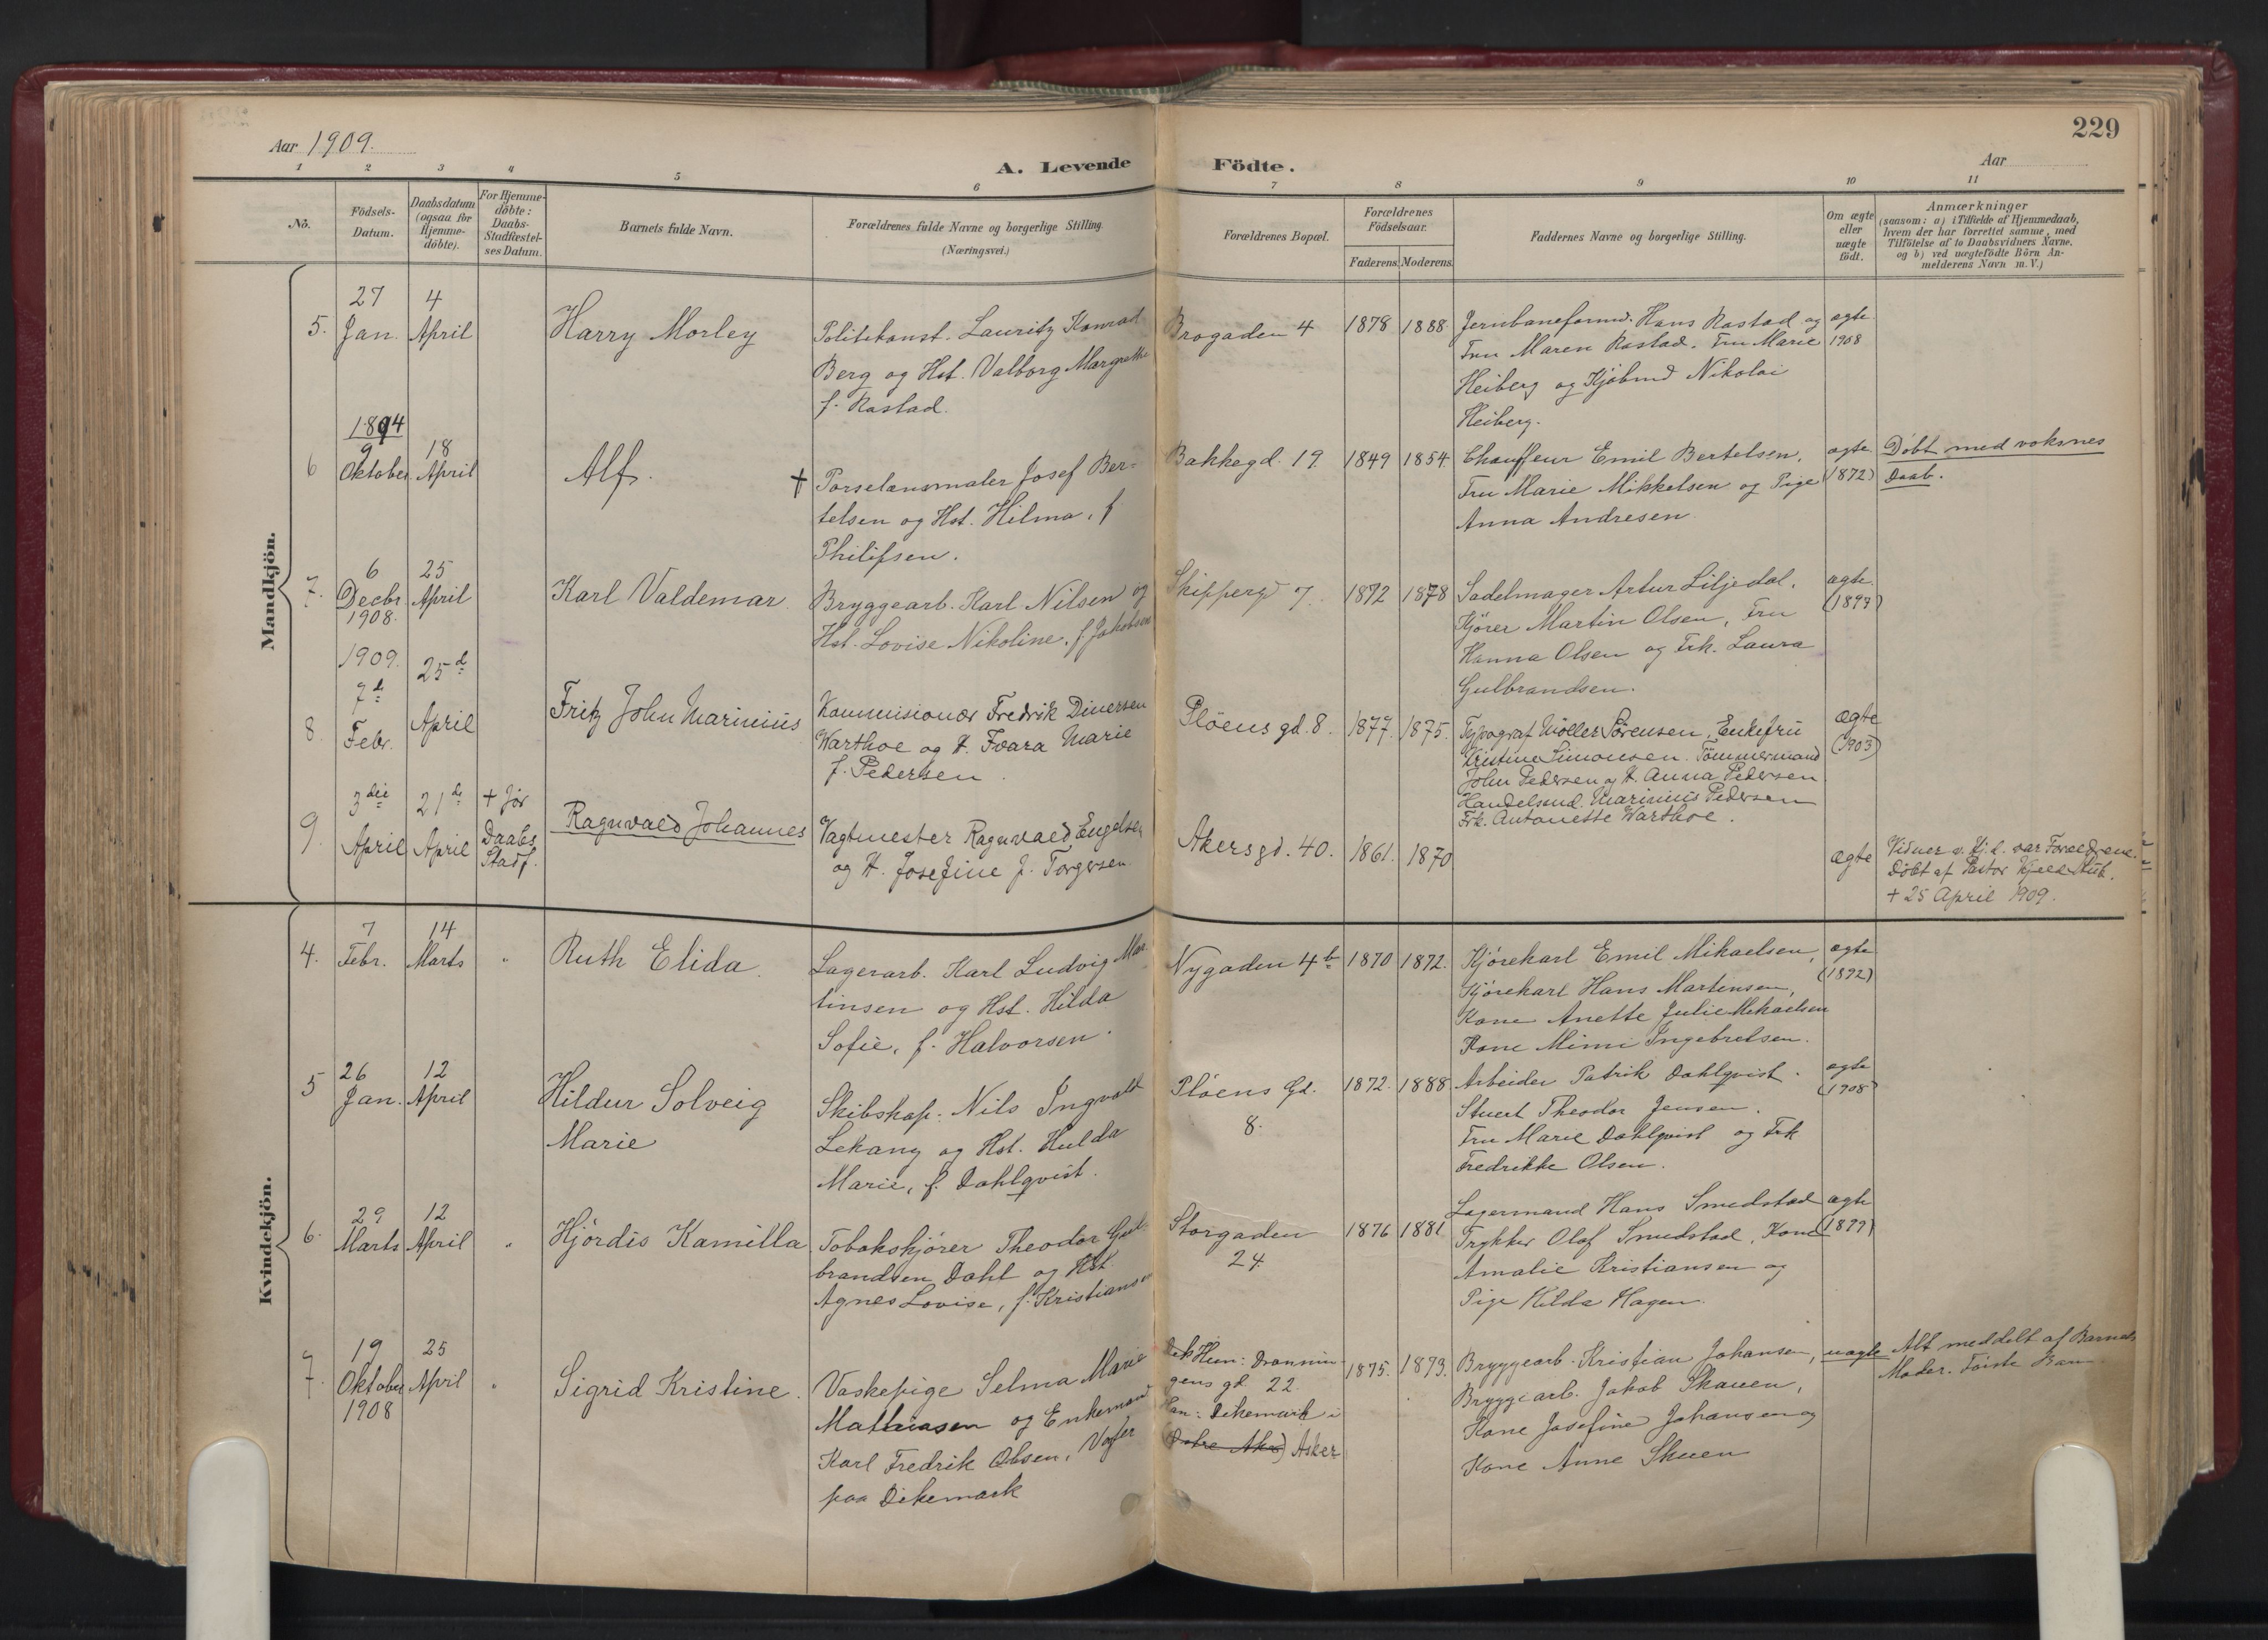 229
Aar 1909.
A. Levende Födte.
Aar
1 2 3 4 5 6 7 8 9 10 11
No.
Födsels-
Datum.
Daabsdatum
(ogsaa for
Hjemme-
döbte).
For Hjemme-
döbte:
Daabs-
Stadfæstel-
ses Datum.
Barnets fulde Navn.
Forældrenes fulde Navne og borgerlige Stilling
(Næringsvei.)
Forældrenes Bopæl.
Forældrenes
Födselsaar.
Faderens. Moderens.
Faddernes Navne og borgerlige Stilling.
Om ægte
eller
uægte
födt.
Anmærkninger
(saasom: a) i Tilfælde af Hjemmedaab,
hvem der har forrettet samme, med
Tilföielse af to Daabsvidners Navne,
og b) ved uægtefödte Börn An-
melderens Navn m. V.)
Mandkjön.
5.
27
Jan.
4
April
Harry Morley
Politikonst. Lauritz Konrad
Berg og Hst. Valborg Margrethe
f. Rastad.
Brogaden 4
1878 1888
Jernbaneformd. Hans Rastad og
Fru Maren Rastad. Fru Marie
Heiberg og Kjøbmd Nikolai
Heiberg.
ægte
1908
6
1894
9
Oktober
18
April
Alf.
† Porselænsmaler Josef Ber-
telsen og Hst. Hilma, f.
Philipsen.
Bakkegd. 19.
1849 1854
Chauffeur Emil Bertelsen,
Fru Marie Mikkelsen og Pige
Anna Andresen
ægte
(1872)
Døbt med voksnes
Daab.
7.
6
Decbr
1908.
25
April
Karl Valdemar
Bryggearb. Karl Nilsen og
Hst. Lovise Nikoline, f. Jakobsen
Skipperg. 7.
1872 1878
Sadelmager Artur Liljedal.
Kjører Martin Olsen, Fru
Hanna Olsen og Frk. Laura
Gulbrandsen.
ægte
8.
1909.
7de
Febr.
25d
April
Fritz John Marinius
Kommisionær Fredrik Dinersen
Warthoe og H. Marie
f. Pedersen.
Pløens gd. 8.
1877. 1875.
Typograf Møller Sørensen, Enkefru
Kristine Simonsen. Tømmermand
John Pedersen og H. Anna Pedersen
Handelsmd. Marinius Pedersen
Frk. Antonette Warthoe.
ægte
(1903)
9.
3die
April
21de
April
+ før
Daabs
Stadf.
Ragnvald Johannes
Vagtmester Ragnvald Engelsen
og H. Josefine f. Torgersen
Akersgd. 40.
1861. 1870
ægte
Vidner v. Hj.d. var Forældrene.
Døbt af Pastor Kjeld Stub.
+ 25 April 1909.
Kvindekjön.
4.
7
Febr.
14
Marts
"
Ruth Elida.
Lagerarb. Karl Ludvig Mar-
tinsen og Hst. Hilda
Sofie, f. Halvorsen.
Nygaden 4b
1870 1872.
Kjørekarl Emil Mikaelsen,
Kjørekarl Hans Martinsen,
Kone Anette Julie Mikaelsen
Kone Mimi Ingebretsen.
ægte
(1892)
5
26
Jan.
12
April
Hildur Solveig
Marie
Skibskap. Nils Ingvald
Lekang og Hst. Hulda
Marie, f. Dahlqvist.
Pløens Gd.
8.
1872. 1888
Arbeider Patrik Dahlqvist.
Stuert Theodor Jensen.
Fru Marie Dahlqvist og Frk
Fredrikke Olsen.
ægte
(1908)
6.
29
Marts
12
April
"
Hjördis Kamilla
Tobakskjører Theodor Gul-
brandsen Dahl og Hst.
Agnes Lovise, f. Kristiansen
Storgaden
24
1876 1881
Lagermand Hans Smedstad
Trykker Olaf Smedstad, Kone
Amalie Kristiansen og
Pige Hilda Hagen.
ægte
(1899)
7.
19
Oktober
1908
25
April
"
Sigrid Kristine.
Vaskepige Selma Marie
Mathiasen og Enkemand
Karl Fredrik Olsen, Vogter
paa Dikemark
Hun: Dronnin-
gens gd 22.
Han: Dikemark i
Asker
1875. 1873.
Bryggearb. Kristian Johansen,
Bryggearb. Jakob Skauen,
Kone Josefine Johansen og
Kone Anne Skuen
uægte
Alt meddelt af Barnets
Moder. Første Barn